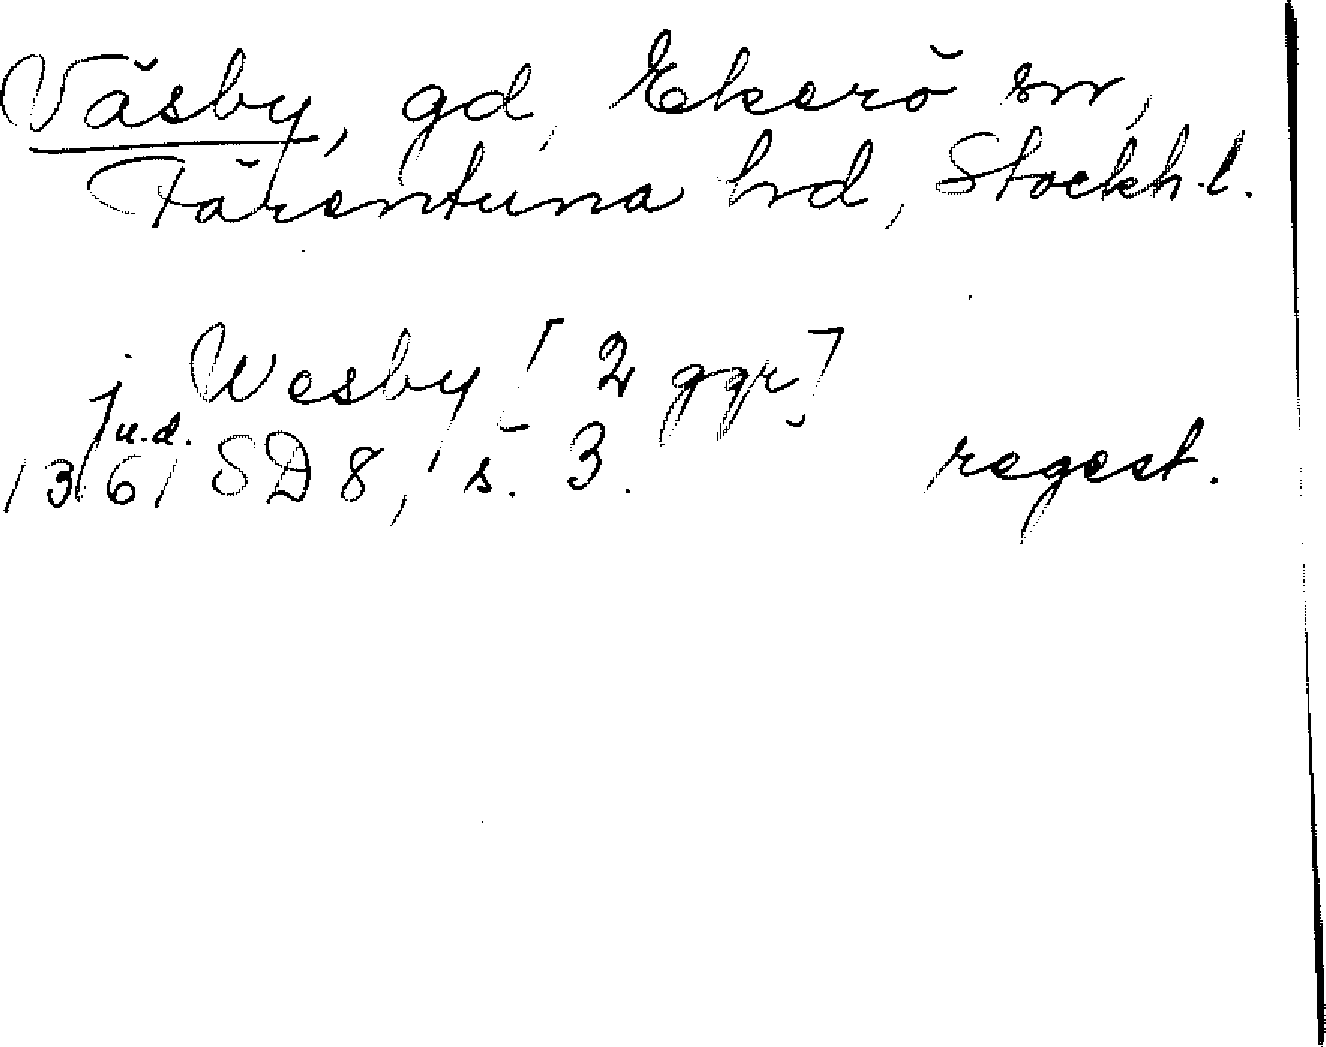 Väsby, gd, Ekerö sn,
Färentuna hd, Stockh. l.
j Wesby [2 ggr]
u.d.
1361 SD 8, s. 3. regest.